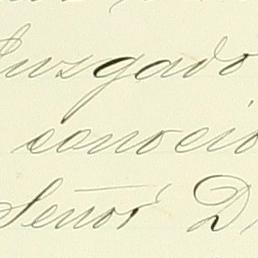 Juzgado
conocio
Señor D